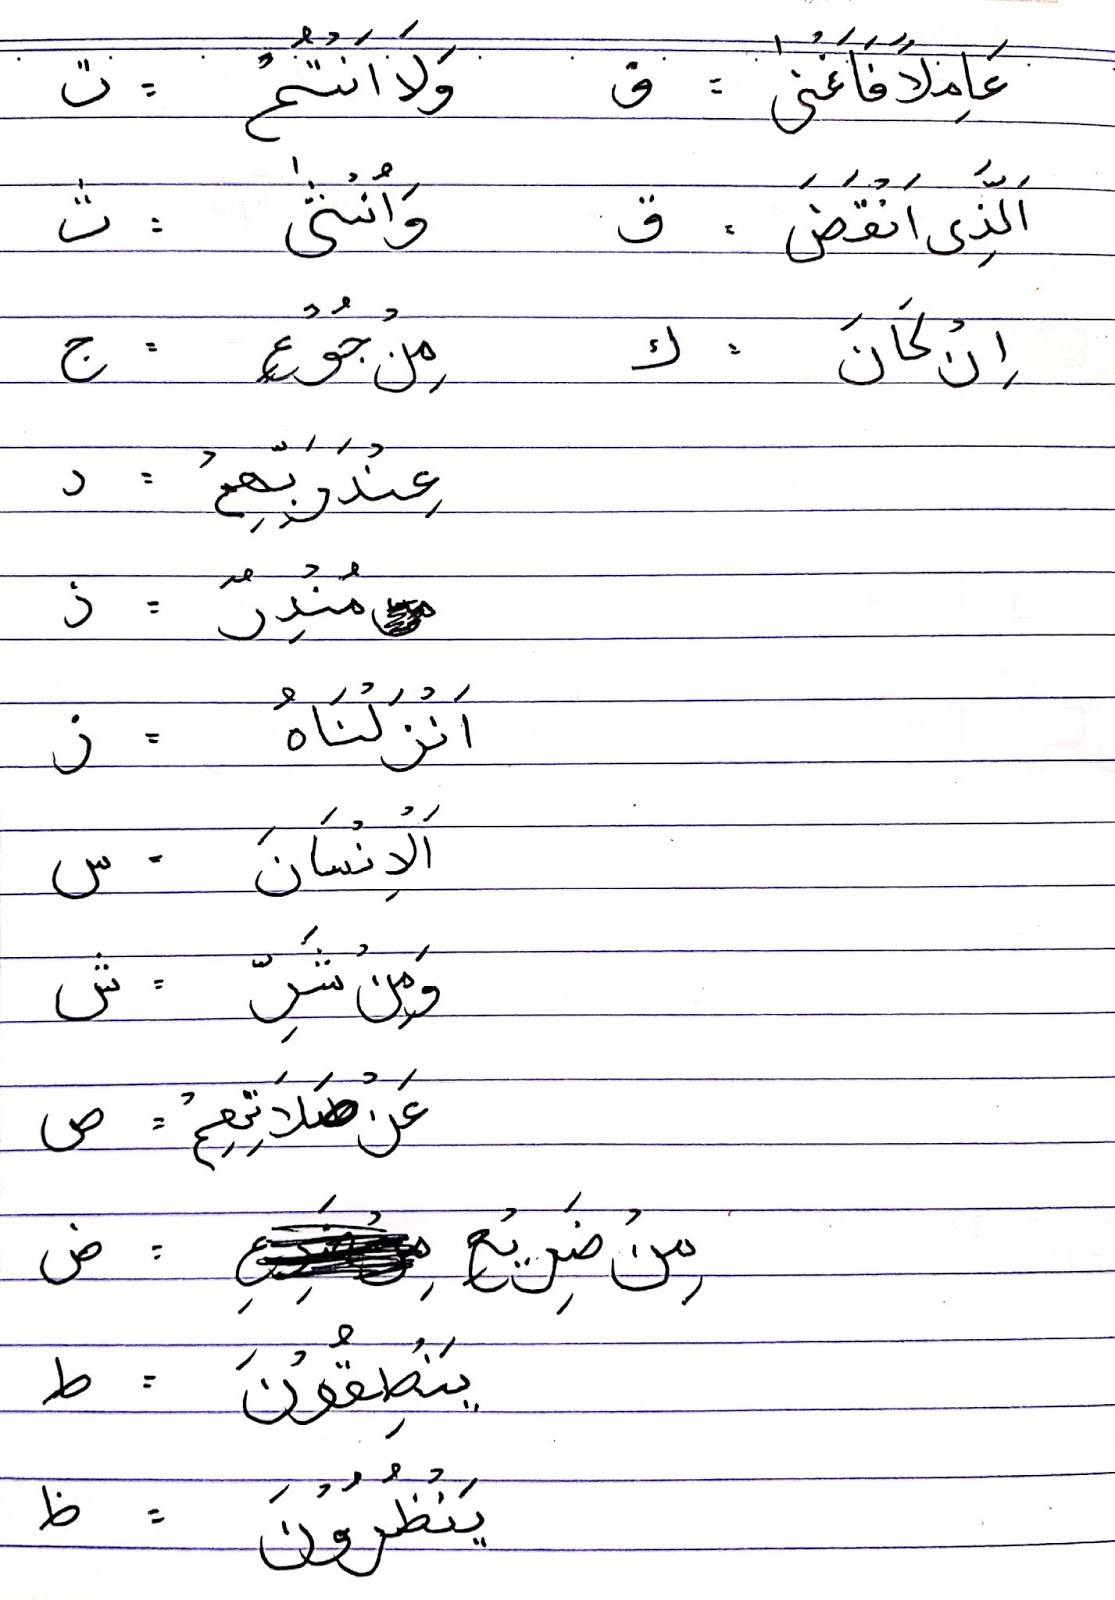 عَامِلاً فَاَغْنٰى = ق    وَلاَ اَنْتُمْ = ت
اَلَّذِى اَنْقَضَ = ق    وَاُنْثٰى = ث
اِنْ كَانَ = ك    مِنْ جُوْعٍ = ج
عِنْدَ رَبِّهِمْ = د
مُنْذِرٌ = ذ
اَنْزَلْنَاهُ = ز
اَلْاِنْسَانَ = س
وَمِنْ شَرِّ = ش
عَنْ صَلاَتِهِمْ = ص
مِنْ ضَرِيْعٍ = ض
يَنْطِقُوْنَ = ط
يَنْظُرُوْنَ = ظ